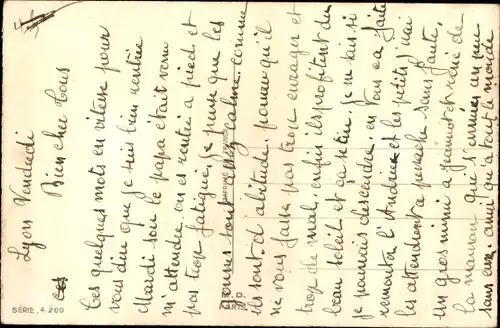 Lyon Vendredi
Bien cher Tous
Ces quelques mots en vitesse pour
vous dire que je suis bien rentrée
Mardi soir le papa était venu
m'attendre on es rentré a pied et
pas trop fatigué, je pense que les
sont assez calme comme
ils sont d'abitude, pourvu qu'il
ne vous fasse pas trop enrager et
trop de mal, enfin ils profitent du
beau soleil et ça se tire. Je ne sais si
je pourrais descendre, en tous ca faite
remonter l'Andrée et les petits, moi
les attendrent a perrache sans faute.
un gros mimi a Jeannot et reine de
la maman que s'ennuie un peu
sans eux. ainsi qu'a tout le monde
SÉRIE, 4.200
PARIS